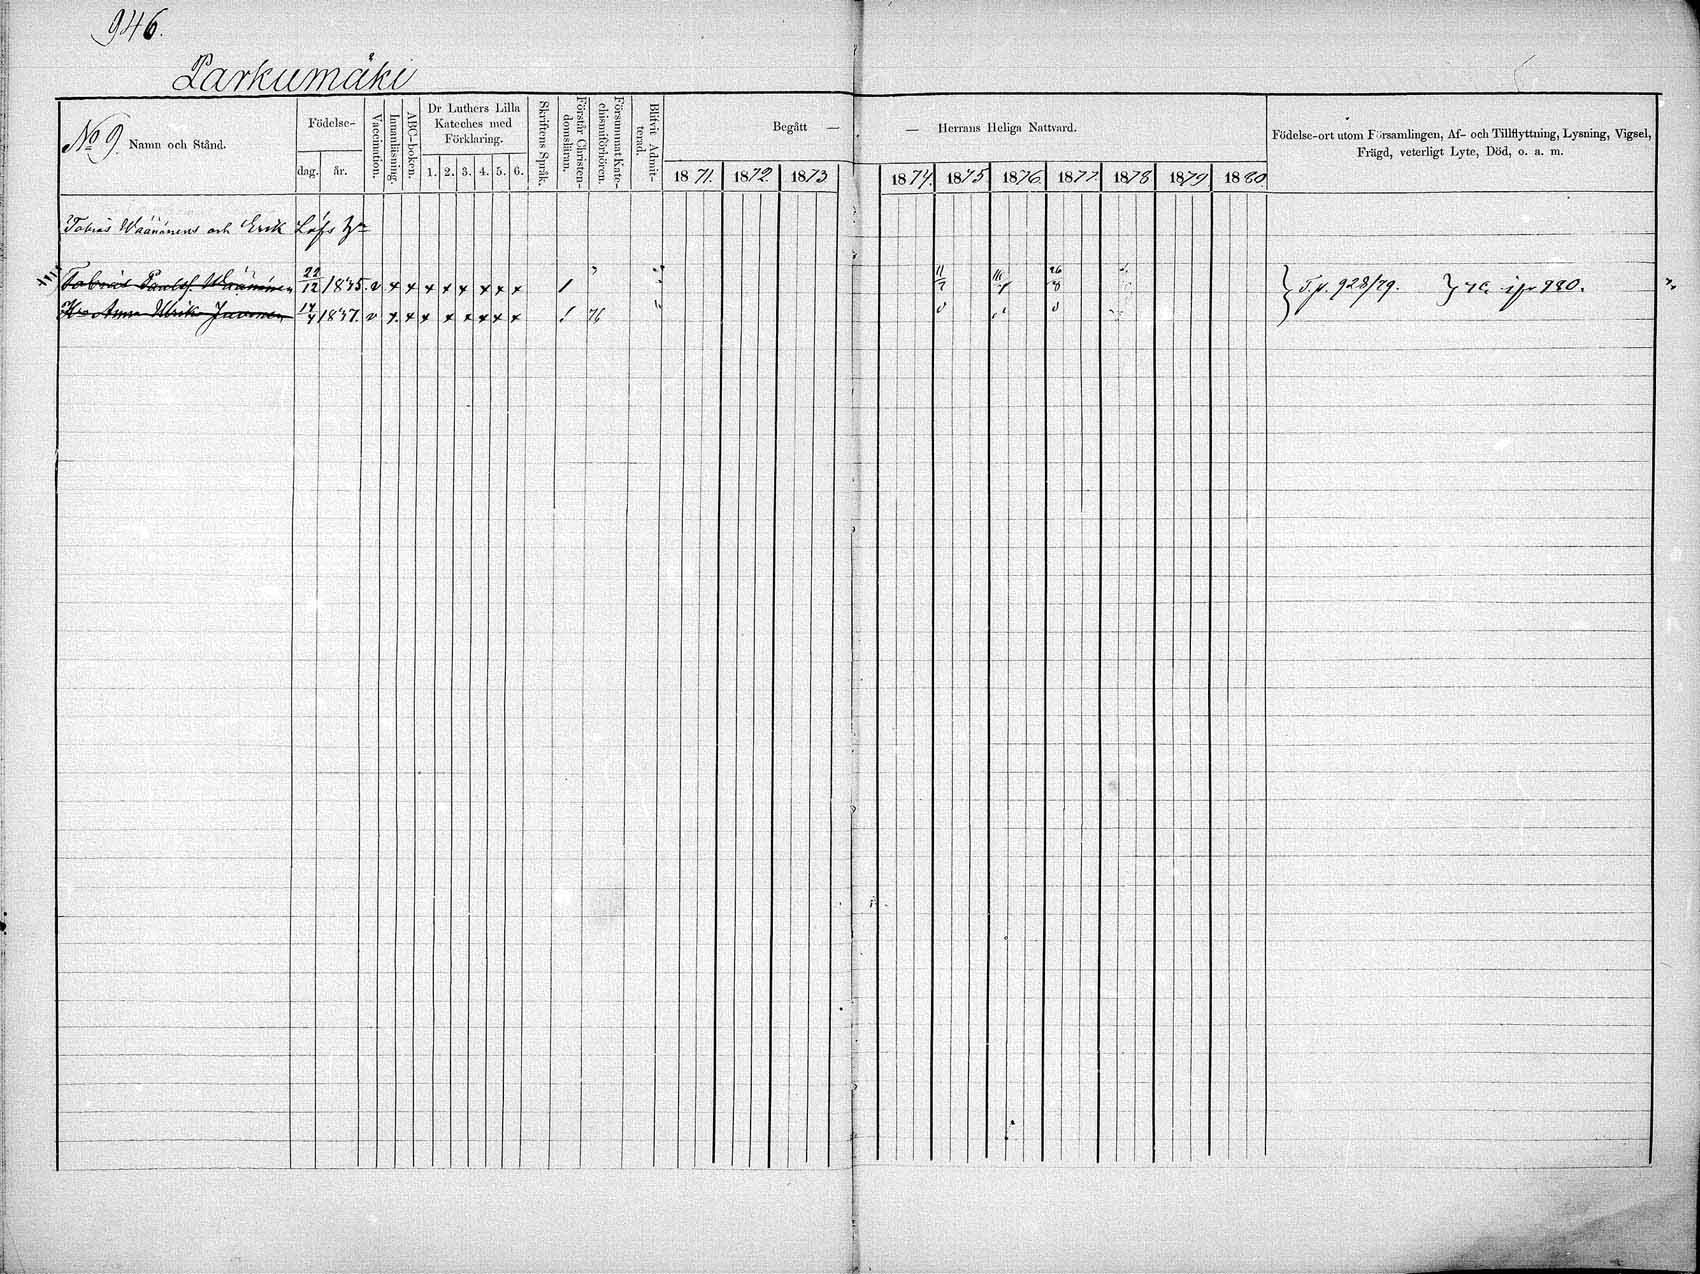 946.
Parkumäki
No 9. Namn och Stånd.
Födelse-
dag.
år.
Vaccination.
Innanläsning.
ABC-boken.
Dr Luthers Lilla
Kateches med
Förklaring.
1. 2. 3. 4. 5. 6.
Skriftens Språk.
Förstår Christen-
domsläran.
Försummat Kate-
chismiförhören.
Blifvit Admit-
terad.
Begått —
— Herrans Heliga Nattvard.
1871. 1872. 1873. 1874. 1875 1876. 1877. 1878 1879 1880.
Födelse-ort utom Församlingen, Af- och Tillflyttning, Lysning, Vigsel,
Frägd, veterligt Lyte, Död, o. a. m.
Tobias Wäänänens och Erik Löfs
Tobias Paulsf. Wäänänen 22/12 1835. v x x x x x x x x T.p. 928/79.
Anna Ulrika 1837. v x x x x x x x x 76